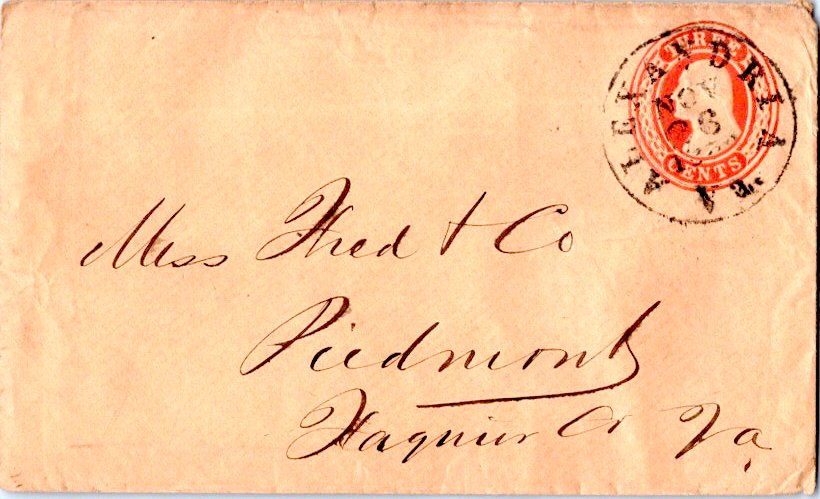 THREE
CENTS
ALEXANDRIA Va
NOV
6
Mess Fred & Co
Piedmont
Fauquier Co Va